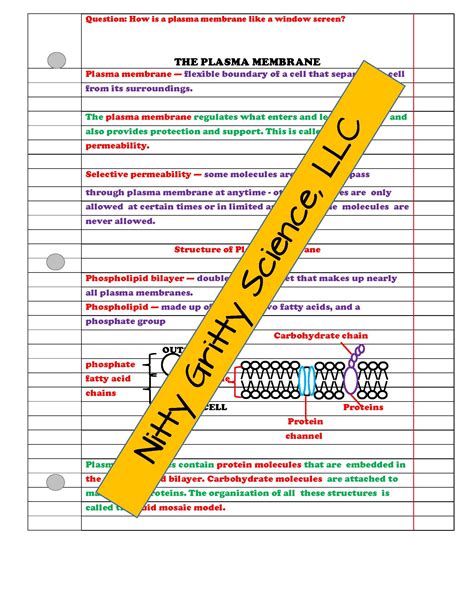 Question: How is a plasma membrane like a window screen?
THE PLASMA MEMBRANE
Plasma membrane — flexible boundary of a cell that sepa cell
from its surroundings.
The plasma membrane regulates what enters and le and
also provides protection and support. This is calle
permeability.
Selective permeability — some molecules are pass
through plasma membrane at anytime - ot es are only
allowed at certain times or in limited a e molecules are
never allowed.
Structure of Pl ane
Phospholipid bilayer — double et that makes up nearly
all plasma membranes.
Phospholipid — made up of vo fatty acids, and a
phosphate group
Carbohydrate chain
OUT
phosphate
fatty acid
chains
CELL
Proteins
Protein
channel
Plasm s contain protein molecules that are embedded in
the d bilayer. Carbohydrate molecules are attached to
ma roteins. The organization of all these structures is
called t uid mosaic model.
Nitty Gritty Science, LLC